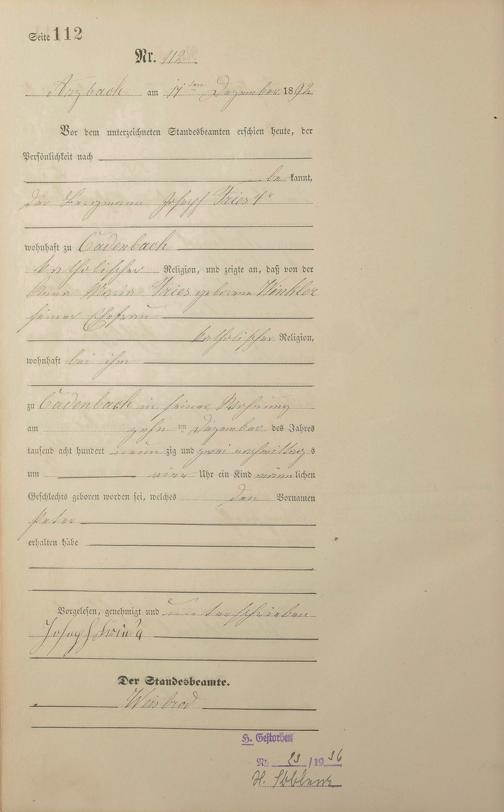 Seite 112
Nr. 112.
Arzbach am 17ten Dezember 1892
Vor dem unterzeichneten Standesbeamten erschien heute, der
Persönlichkeit nach
be kannt,
der Bergmann Joseph Fries
wohnhaft zu Cadenbach
katholischer Religion, und zeigte an, daß von der
Anna Maria Fries geborene Winkler
seiner Ehefrau
katholischer Religion,
wohnhaft bei ihm
zu Cadenbach in seiner Wohnung
am zehn ten Dezember des Jahres
tausend acht hundert neun zig und zwei nachmittag s
um vier Uhr ein Kind männ lichen
Geschlechts geboren worden sei, welches den Vornamen
Peter
erhalten habe
Vorgelesen, genehmigt und unterschrieben
Joseph
Der Standesbeamte.
Weisbrod
H. Gestorben
Nr. 23 / 1936